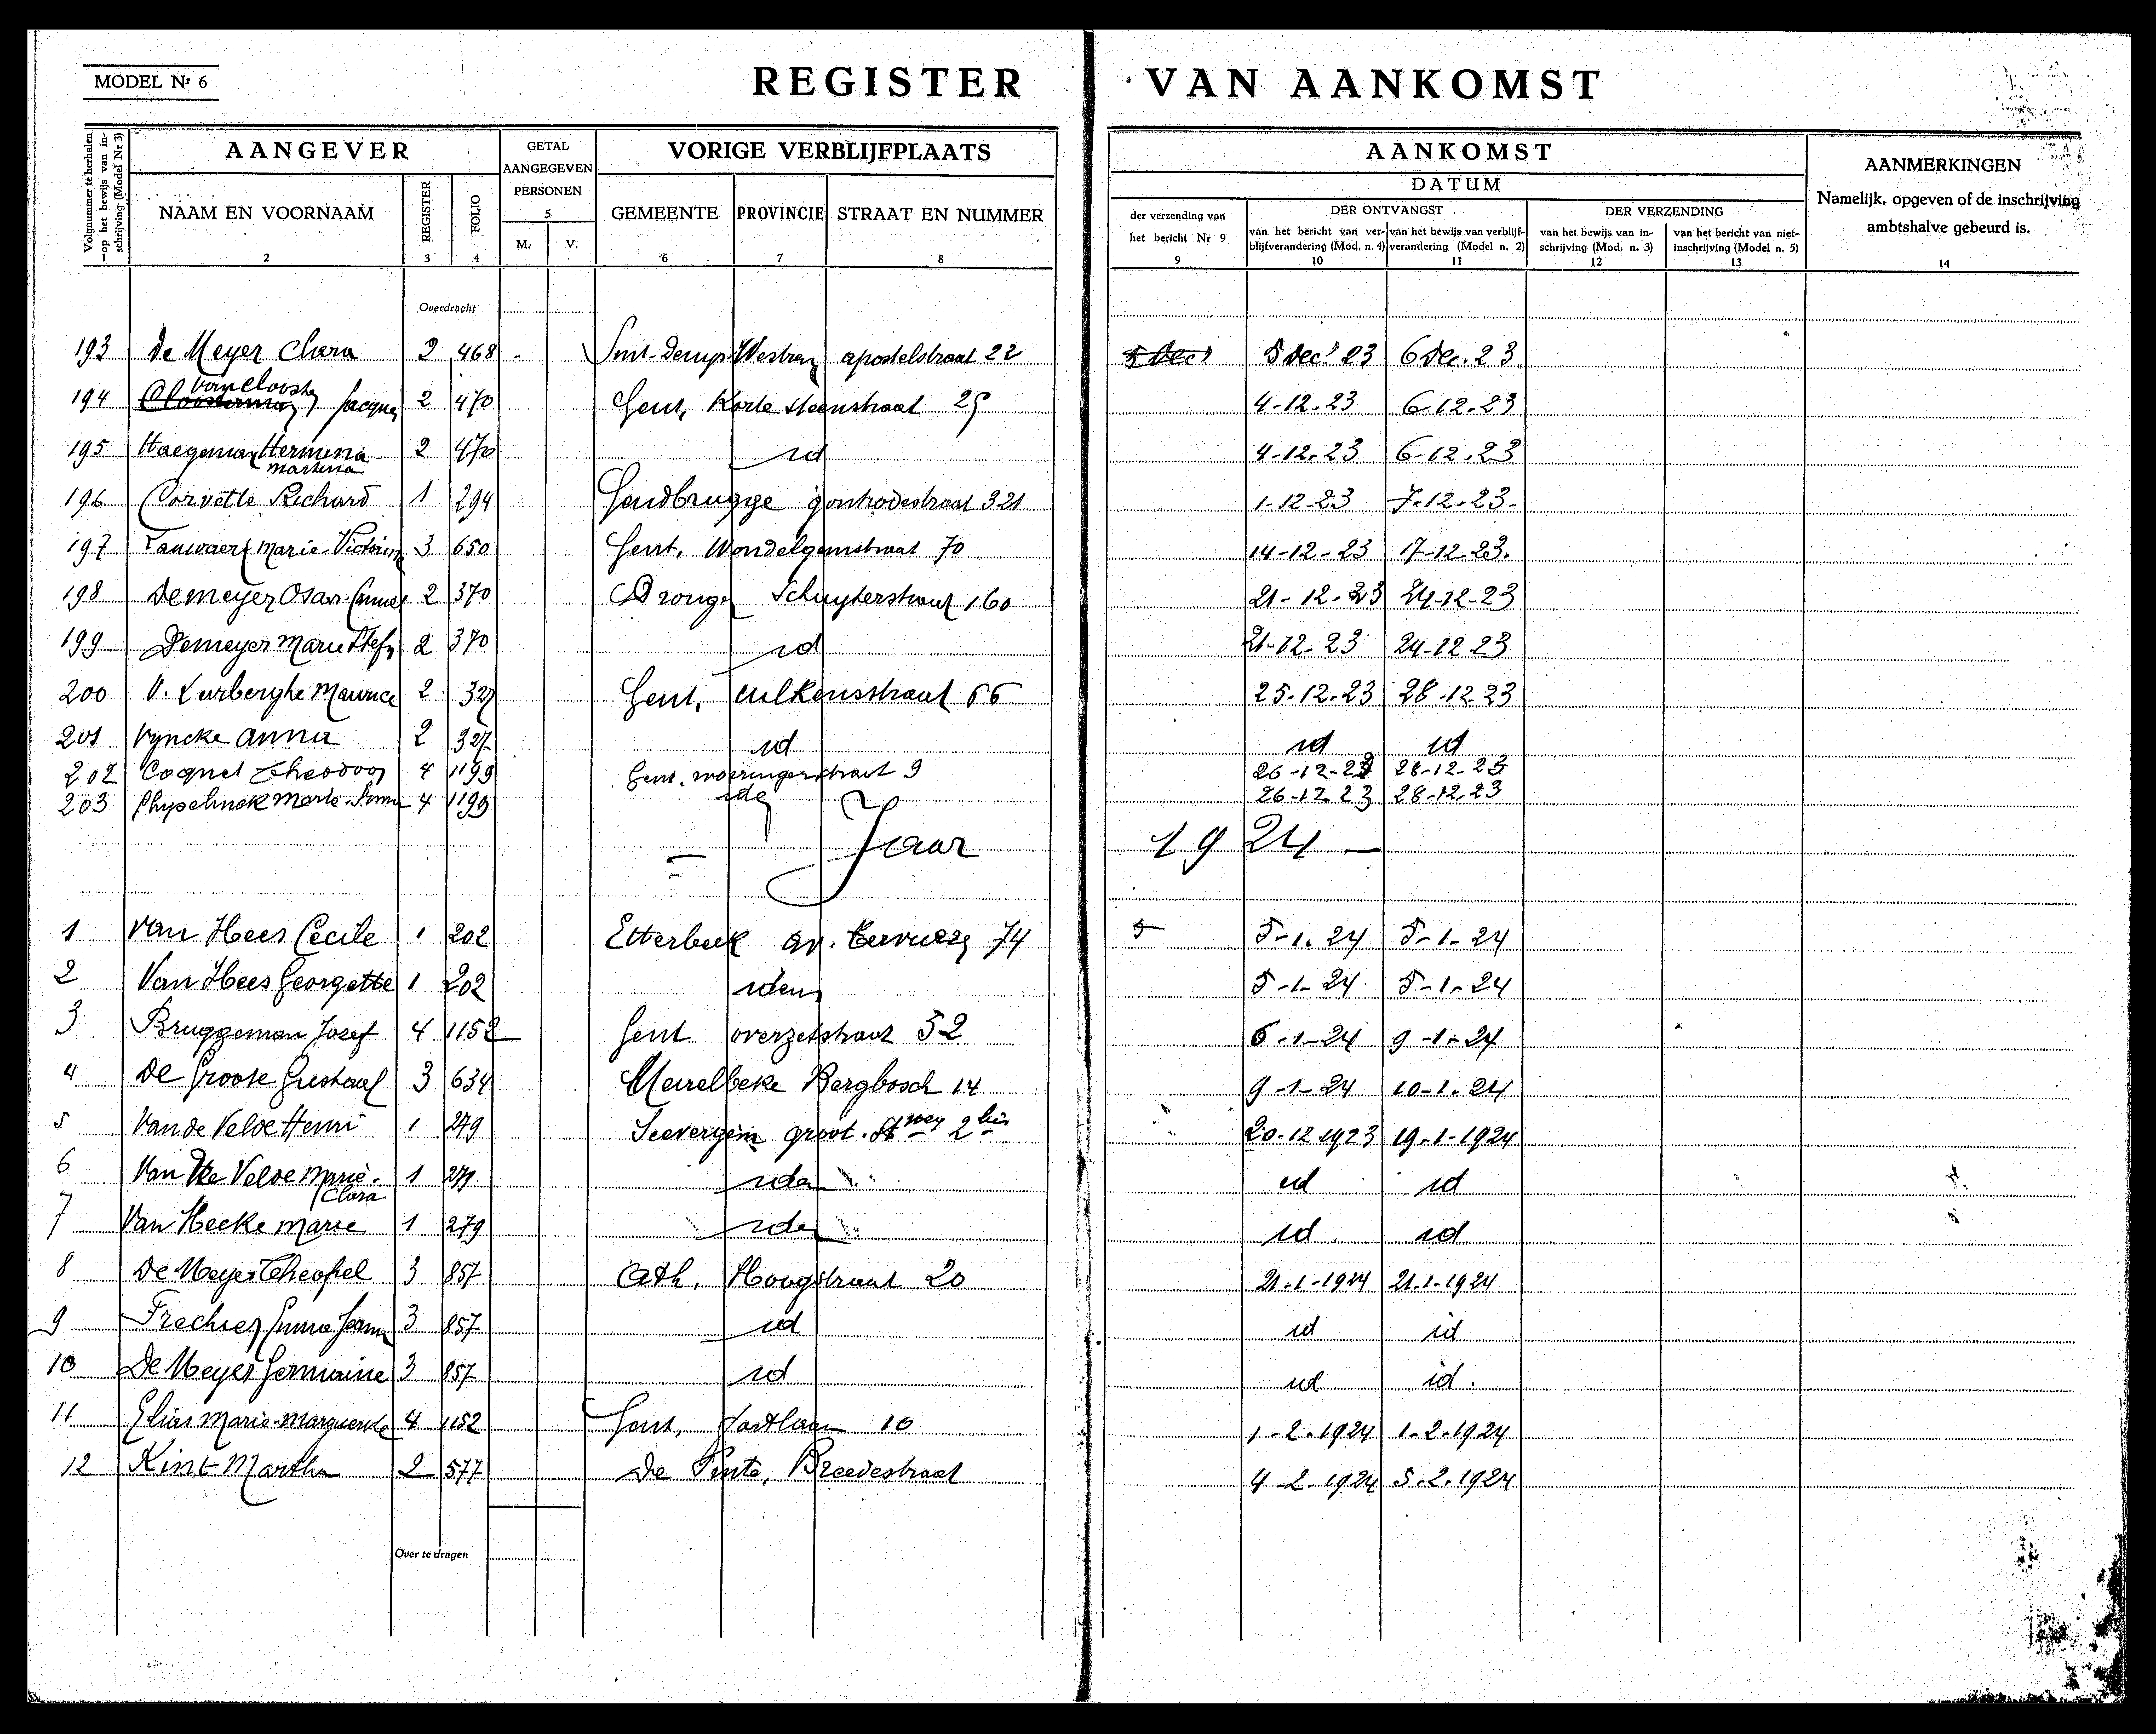 MODEL Nr 6
REGISTER VAN AANKOMST
Volgnummer te herhalen op het bewijs van inschrijving (Model Nr 3)
AANGEVER
GETAL AANGEGEVEN PERSONEN
5
VORIGE VERBLIJFPLAATS
AANKOMST
DATUM
AANMERKINGEN
Namelijk, opgeven of de inschrijving ambtshalve gebeurd is.
NAAM EN VOORNAAM REGISTER FOLIO M. V. GEMEENTE PROVINCIE STRAAT EN NUMMER
der verzending van het bericht Nr 9
DER ONTVANGST
van het bericht van verblijfverandering (Mod. n. 4) van het bewijs van verblijfverandering (Model n. 2)
DER VERZENDING
van het bewijs van inschrijving (Mod. n. 3) van het bericht van niet-inschrijving (Model n. 5)
1 2 3 4 6 7 8 9 10 11 12 13 14
Overdracht
193 De Meyer Clara 2 468 apostelstraat 22 5 Dec 5 Dec 23 6 Dec. 23
194 Van Clooster Jacques 2 470 Gent, Korte Steenstraat 25 4-12-23 6-12-23
195 Haegeman Hermina Martina 2 470 id 4-12-23 6-12-23
196 Corvette Richard 1 294 Gendbrugge gontrodestraat 321 1-12-23 7-12-23
197 Marie-Victorine 3 650 Gent, Wondelgemstraat 70 14-12-23 17-12-23
198 Demeyer 2 370 Dronge Schuyterstraat 160 21-12-23 24-12-23
199 Demeyer Marie Stef 2 370 id 21-12-23 24-12-23
200 V. Lerberghe Maurice 2 327 Gent, 66 25-12-23 28-12-23
201 Vyncke Anna 2 327 id id id
202 Coquet Theodoor 4 1199 Gent. woeringerstraat 9 26-12-23 28-12-23
203 Marie 4 1199 ide 26-12-23 28-12-23
Jaar 1924
1 Van Hees Cecile 1 202 Etterbeek av. Tervueren 74 5 5-1-24 5-1-24
2 Van Hees Georgette 1 202 idem 5-1-24 5-1-24
3 Bruggeman Jozef 4 1152 Gent overzetstraat 52 6-1-24 9-1-24
4 De Groote Gustaaf 3 634 Meirelbeke Bergbosch 14 9-1-24 10-1-24
5 Van de Velde Henri 1 279 Seevergem groot. Stweg 2bis 20-12-1923 19-1-1924
6 Van De Velde Marie Clara 1 279 idem id id
7 Van Hecke Marie 1 279 idem id id
8 De Meyer Theofiel 3 857 Cath. Hoogstraat 20 21-1-1924 21-1-1924
9 3 857 id id id
10 De Meyer Germaine 3 857 id id id
11 Elias Marie-Marguerite 4 1152 Gent, 10 1-2-1924 1-2-1924
12 Kint Martha 2 577 De Pinte, Breedestraat 4-2-1924 5-2-1924
Over te dragen